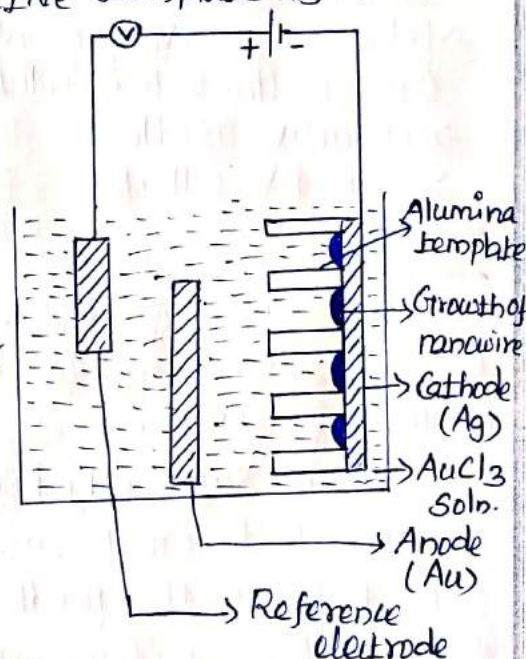 V
+ -
Alumina
template
Growth of
nanowire
Cathode
(Ag)
AuCl3
Soln.
Anode
(Au)
Reference
electrode